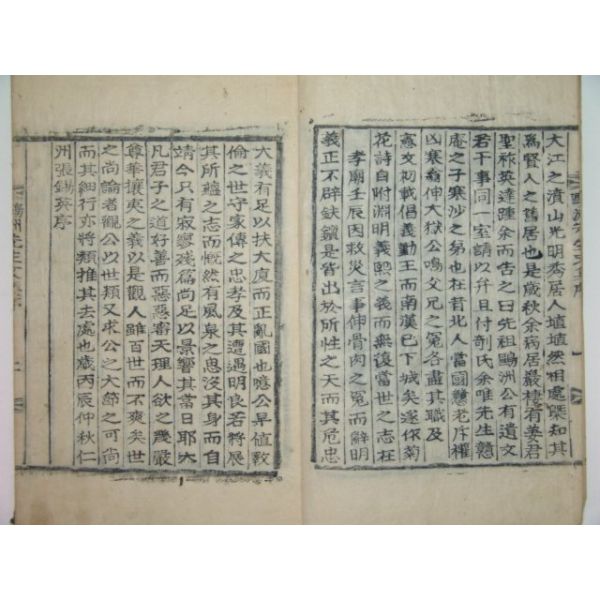 大江之濆山光明秀居人埴埴然相處聚知其
爲賢人之舊居也是歲秋余病居巖棲有姜君
聖祚英達踵余而告之曰先祖鷗洲公有遺文
若干事同一室請以弁且付剞氏余唯先生戇
庵之子寒沙之弟也在昔北人當國戇老斥權
凶寒翁伸大獄公鳴父兄之冤各盡其職及
憲文初載倡義勤王而南漢已下城矣遂依菊
花詩自附明義熙之義而無復當世之志在
孝廟壬辰因救災言事伸骨肉之冤而辭明
義正不辟鈇鑕是皆出於所性之天而其危忠
大義有足以扶大廈而正亂國也噫公早値斁
倫之世守家傳之忠孝及其遭遇明良若將展
其所蘊之志而慨然有風泉之思沒其身而自
靖今只有寂寥殘篇尚足以景響其當日耶大
凡君子之道好善而惡惡審天理人欲之幾嚴
尊華攘夷之義以是觀人雖百世而不爽矣世
之尚論者觀公以世類又求公之大節之可尚
而其細行亦將類推其去處也歲丙辰仲秋仁
州張錫英序
鷗洲先生文集序